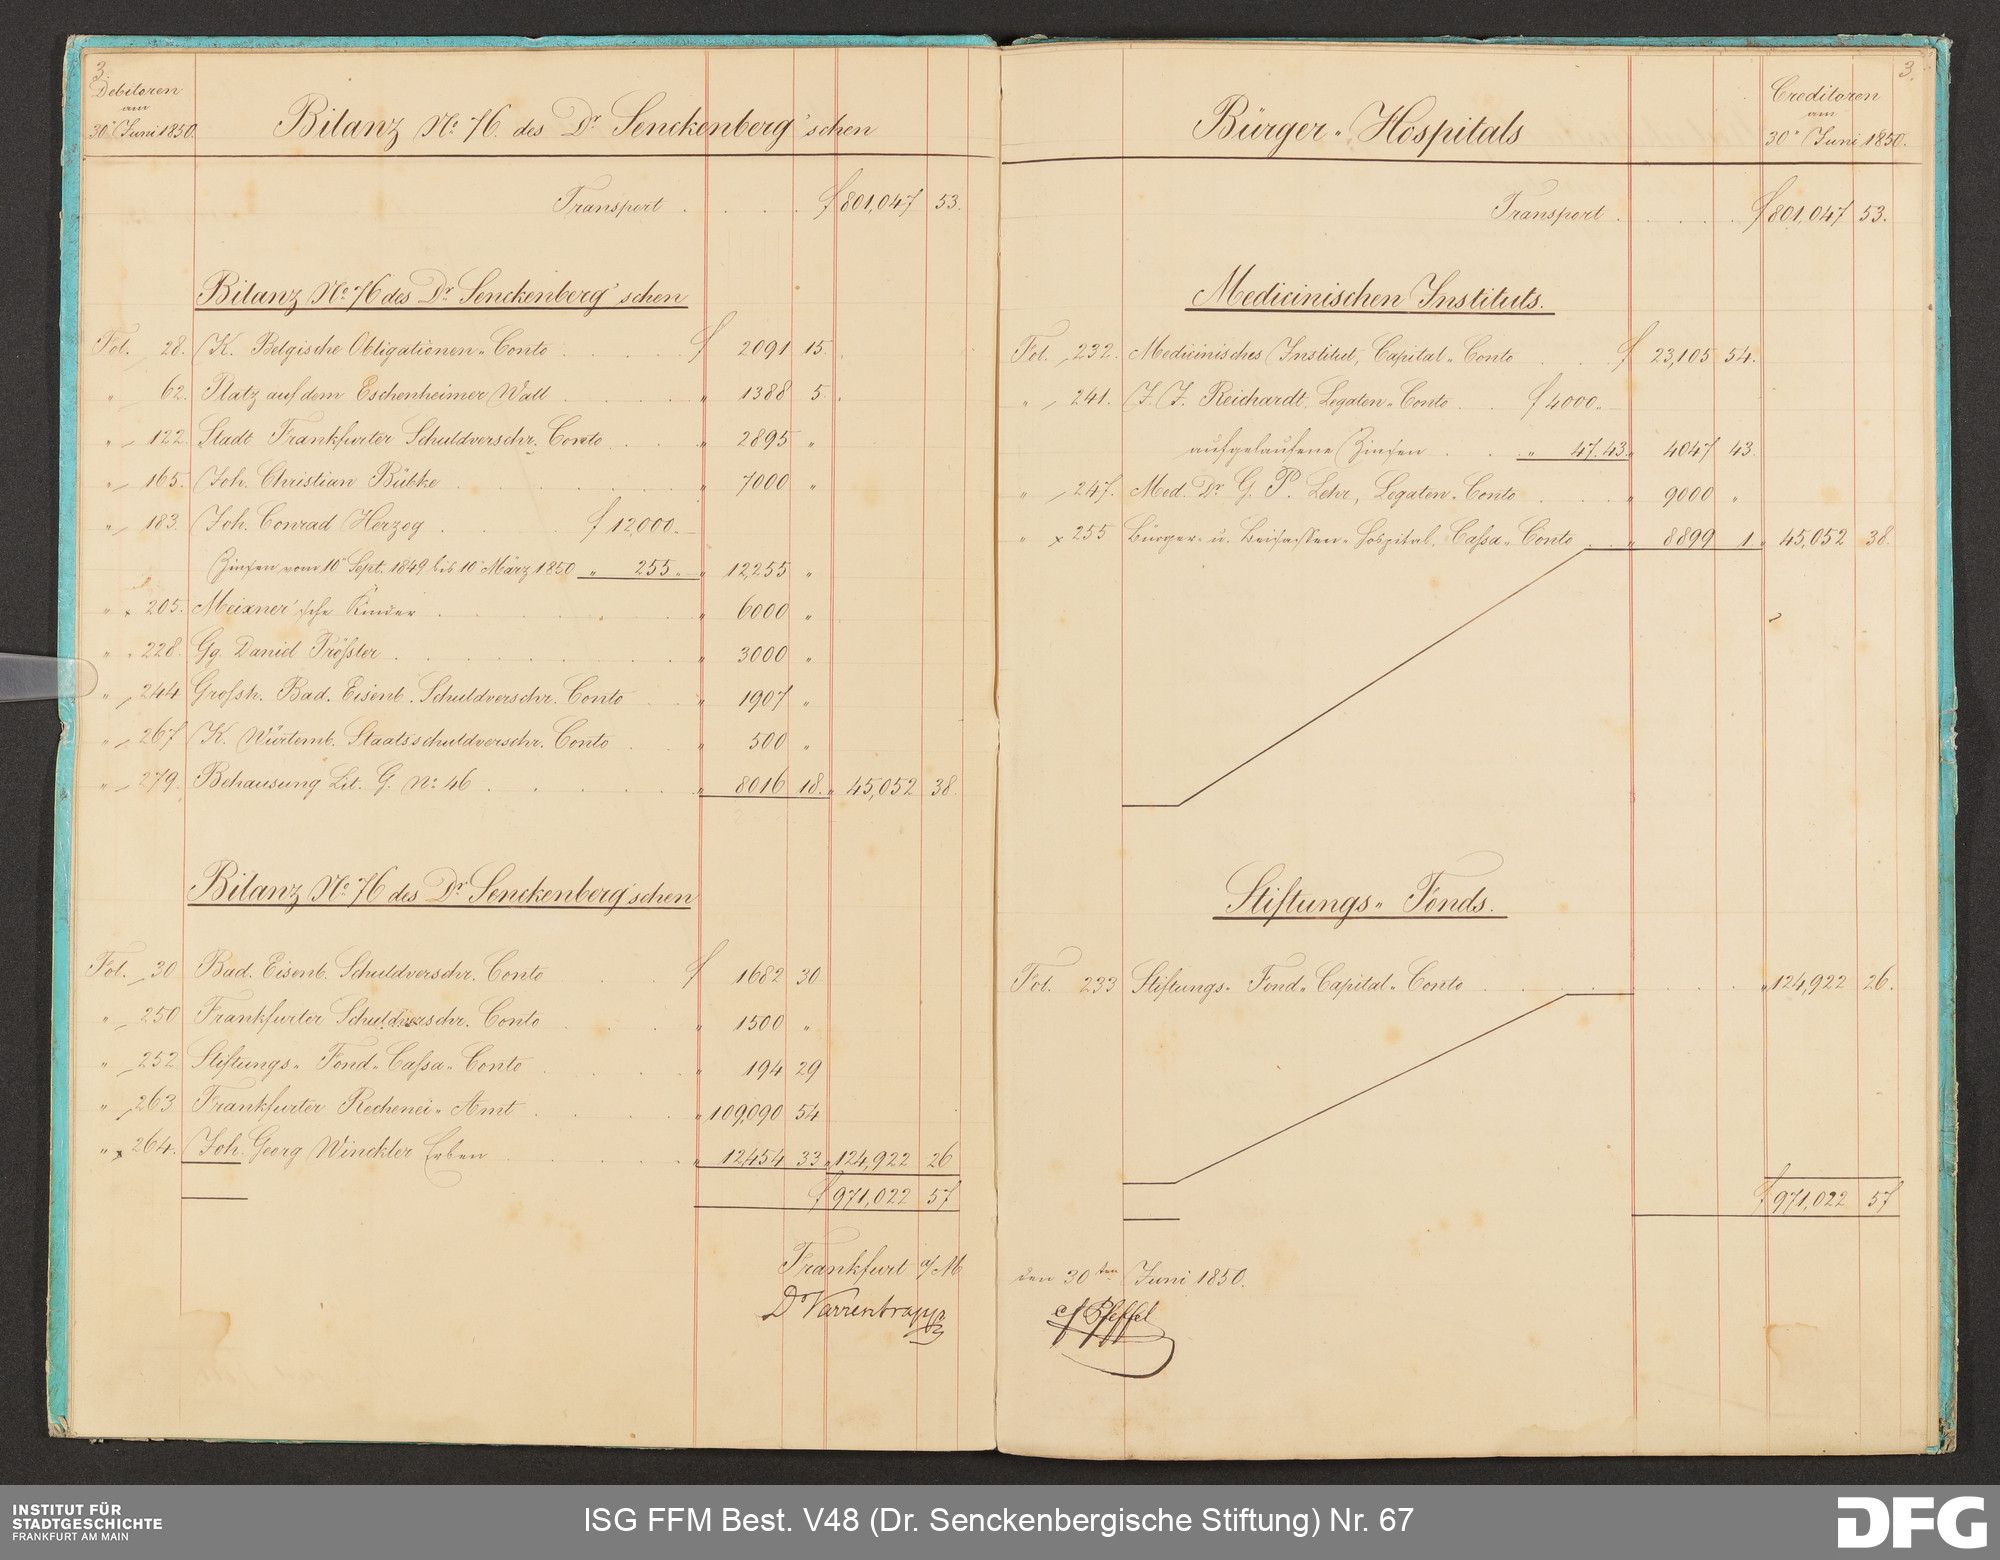 3.
Debitoren
am
30n Juni 1850.
Bilanz No. 76. des Dr Senckenberg'schen
Transport . . . . f 801,047 53.
Bilanz No. 76 des Dr Senckenberg'schen
Fol. 28. K. Belgische Obligationen-Conto . . . f 2091 15.
" 62. Platz auf dem Eschenheimer Wall . . . " 1388 5.
" 122. Stadt Frankfurter Schuldverschr. Conto . . " 2895 "
" 165. Joh. Christian Bübke . . . " 7000 "
" 183. Joh. Conrad Herzog . . . f 12,000.-
Zinsen vom 10n Sept. 1849 bis 10n März 1850 " 255.- " 12,255 "
" x 205. Meixner'sche Kinder . . . " 6000 "
" " 228. Gg. Daniel Prößler . . . " 3000 "
" 244 Großh. Bad. Eisenb. Schuldverschr. Conto . . " 1907 "
" 267 K. Würtemb. Staatsschuldverschr. Conto . . " 500 "
" 279. Behausung Lit. G. No. 46 . . . " 8016 18. " 45,052 38.
Bilanz No. 76 des Dr Senckenberg'schen
Fol. 30 Bad. Eisenb. Schuldverschr. Conto . . f 1682 30
" 250 Frankfurter Schuldverschr. Conto . . . " 1500 "
" 252 Stiftungs-Fond-Cassa-Conto . . . " 194 29
" 263 Frankfurter Rechenei-Amt . . . " 109,090 54
" x 264. Joh. Georg Winckler Erben . . . " 12,454 33 " 124,922 26
f 971,022 57
Frankfurt a/M
Dr Varrentrapp
3.
Creditoren
am
30n Juni 1850.
Bürger-Hospitals
Transport . . . . f 801,047 53.
Medicinischen Instituts.
Fol. 232. Medicinisches Institut, Capital-Conto . . f 23,105 54.
" 241. J. J. Reichardt, Legaten-Conto . . f 4000.-
aufgelaufene Zinsen . . . " 47.43. " 4047 43.
" 247. Med. Dr G. P. Lehr, Legaten-Conto . . . " 9000 "
" x 255 Bürger- u. Beisassen-Hospital, Cassa-Conto . . " 8899 1. " 45,052 38.
Stiftungs-Fonds.
Fol. 233 Stiftungs-Fond-Capital-Conto . . . " 124,922 26.
f 971,022 57
den 30ten Juni 1850.
Pfeffel
INSTITUT FÜR
STADTGESCHICHTE
FRANKFURT AM MAIN
ISG FFM Best. V48 (Dr. Senckenbergische Stiftung) Nr. 67
DFG